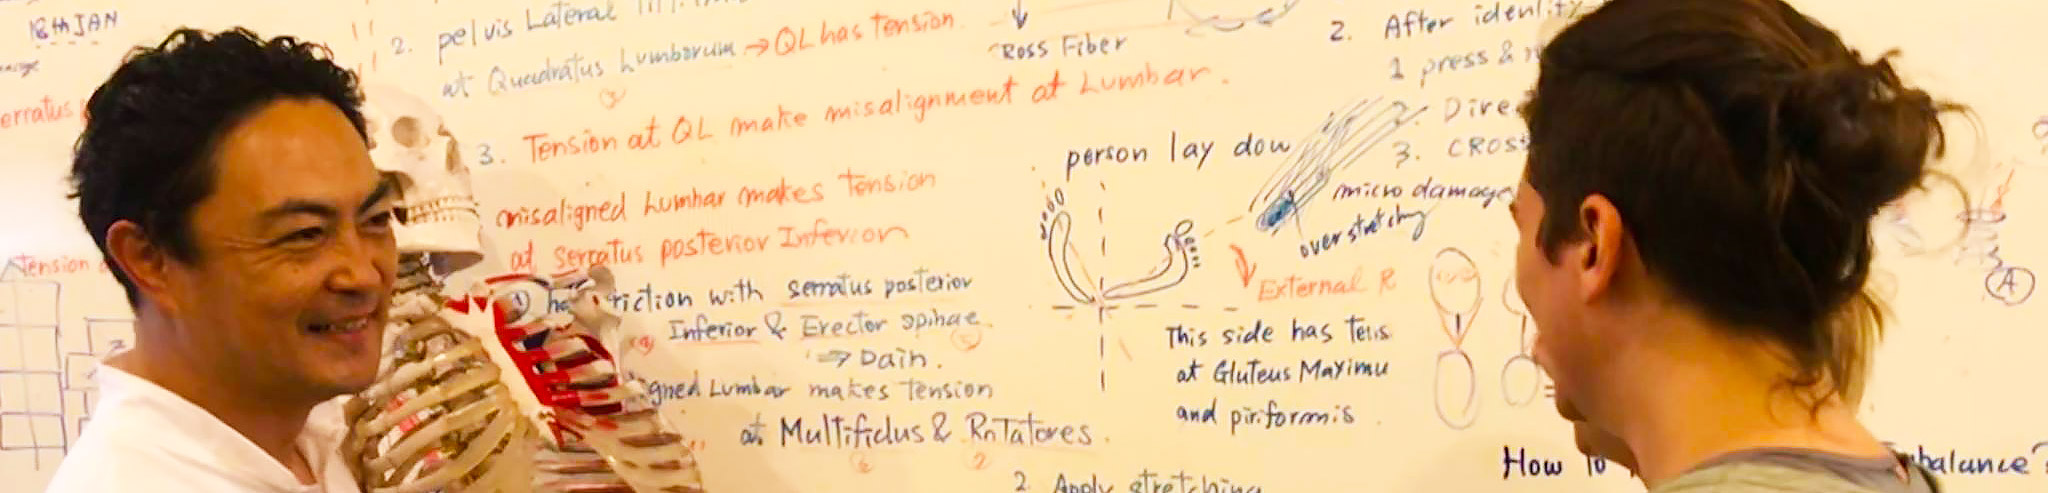 18th JAN
erratus
Tension
2. pelvis Lateral
at Quadratus Lumborum → QL has Tension
3. Tension at QL make misalignment at Lumbar.
misaligned Lumbar makes Tension
at Serratus posterior Inferior
① riction with serratus posterior
Inferior & Erector spinae.
⇒ Pain.
igned Lumbar makes Tension
at Multifidus & RoTatores.
Ross Fiber
person lay dow
External R
This side has Tens
at GluTeus Maximu
and piriformis.
2. Apply stretching
2. After identity
1 press &
2. Dire
3. CROSS
micro damage
over stretching
A
How To
balance?